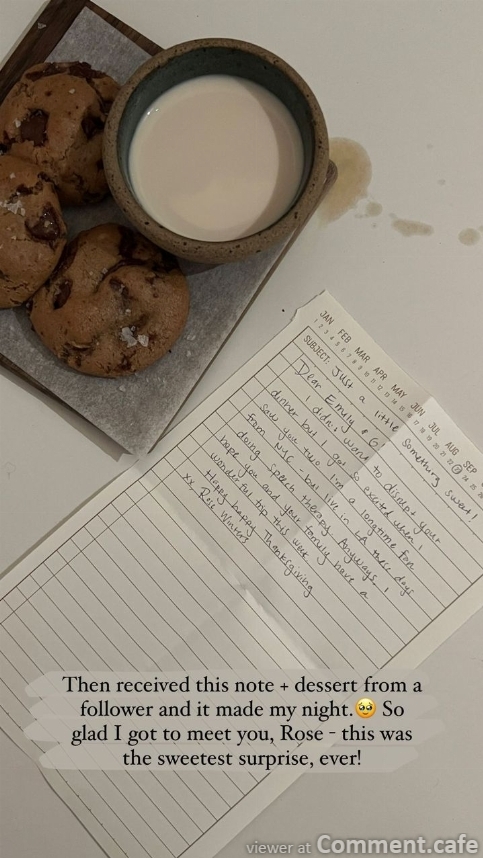 JAN FEB MAR APR MAY JUN JUL AUG SEP
SUBJECT: Just a little something sweet!
Dear Emily & G,
I didn't want to disrupt your
dinner but I got so excited when I
saw you two. I'm a longtime fan
from NYC - but live in LA these days
doing speech therapy. Anyways, I
hope you and your family have a
wonderful trip this week
Happy happy Thanksgiving
xx, Rose Winters
Then received this note + dessert from a
follower and it made my night.🥹 So
glad I got to meet you, Rose - this was
the sweetest surprise, ever!
viewer at Comment.cafe